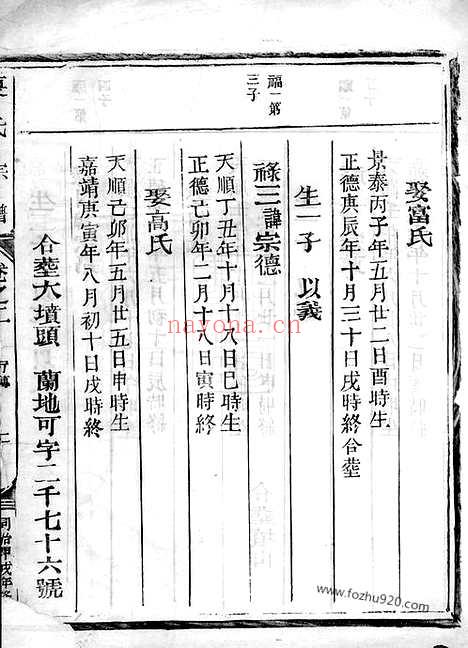 娶富氏
景泰丙子年五月廿二日酉時生
正德庚辰年十月三十日戌時終合塟
生一子 以義
福一第
三子
祿三諱宗德
天順丁丑年十月十八日巳時生
正德己卯年二月十八日寅時終
娶高氏
天順己卯年五月廿五日申時生
嘉靖庚寅年八月初十日戌時終
合塟大墳頭 蘭地可字二千七十六號
氏宗譜
同治甲戌年
nayona.cn
www.fozhu920.com